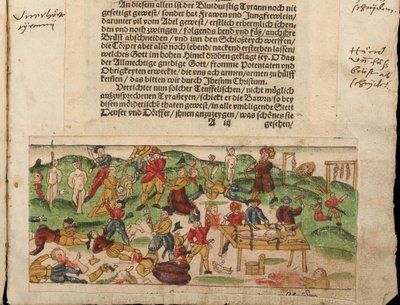 An disem allen ist der Blutdurstig Tyrann noch nit
gesettigt gewest / sonder hat Frawen vnd Jungkfrewlein /
darunter vil vom Adel gewest / erstlich erbermlich schen-
den vnd noth zwingen / folgends hend vnd füß / auch jhre
Brüst abschneiden / vnd inn den Schloßteych werffen /
die Cörper aber also noch lebend / nackend ersterben lassen /
welches Gott im hohen Himel droben geklagt sey. O das
der Allmechtige gnedige Gott / fromme Potentaten vnd
Obrigkeyten erweckte / die vns armen / zu hülff
kemen / das bitten wir durch Jhesum Christum.
Verrichter nun solcher Teuffelischen / nicht möglich
Tyrañeyen / schickt er die Bawrn so bey
disen mörderische thaten gewest / in alle vmbligende Stett
vnd Dörffer / jhnen anzuzeygen / was schönes sie
A iij gesehen /